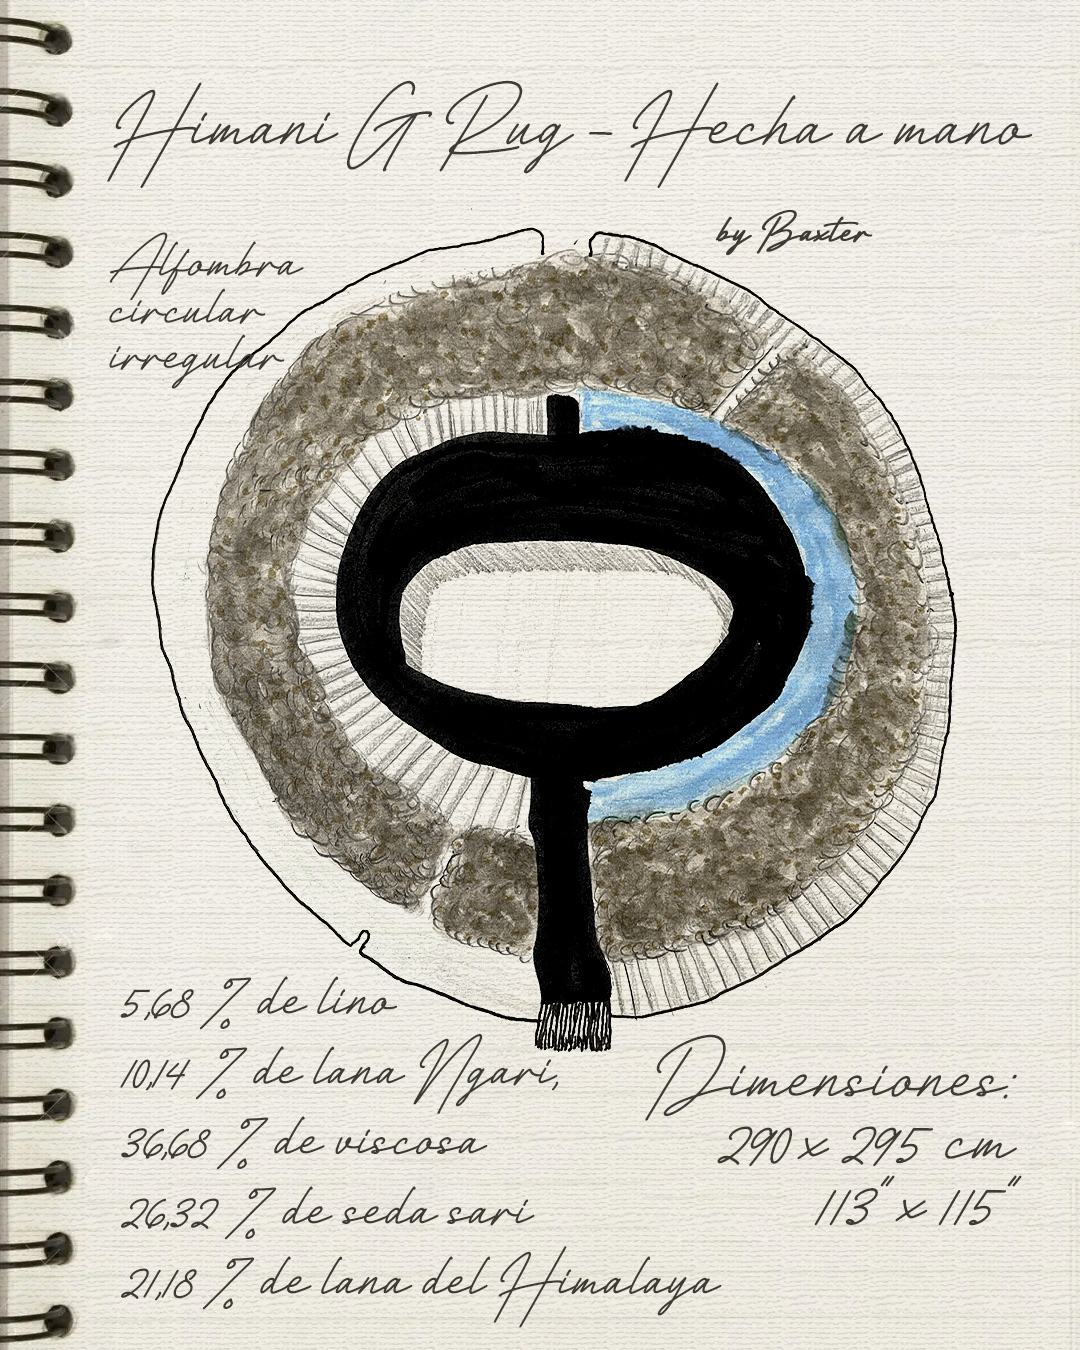 Himani G Rug - Hecha a mano
by Baxter
Alfombra
circular
irregular
5,68 % de lino
10,14 % de lana Ngari,
36,68 % de viscosa
26,32 % de seda sari
21,18 % de lana del Himalaya
Dimensiones:
290 x 295 cm
113" x 115"